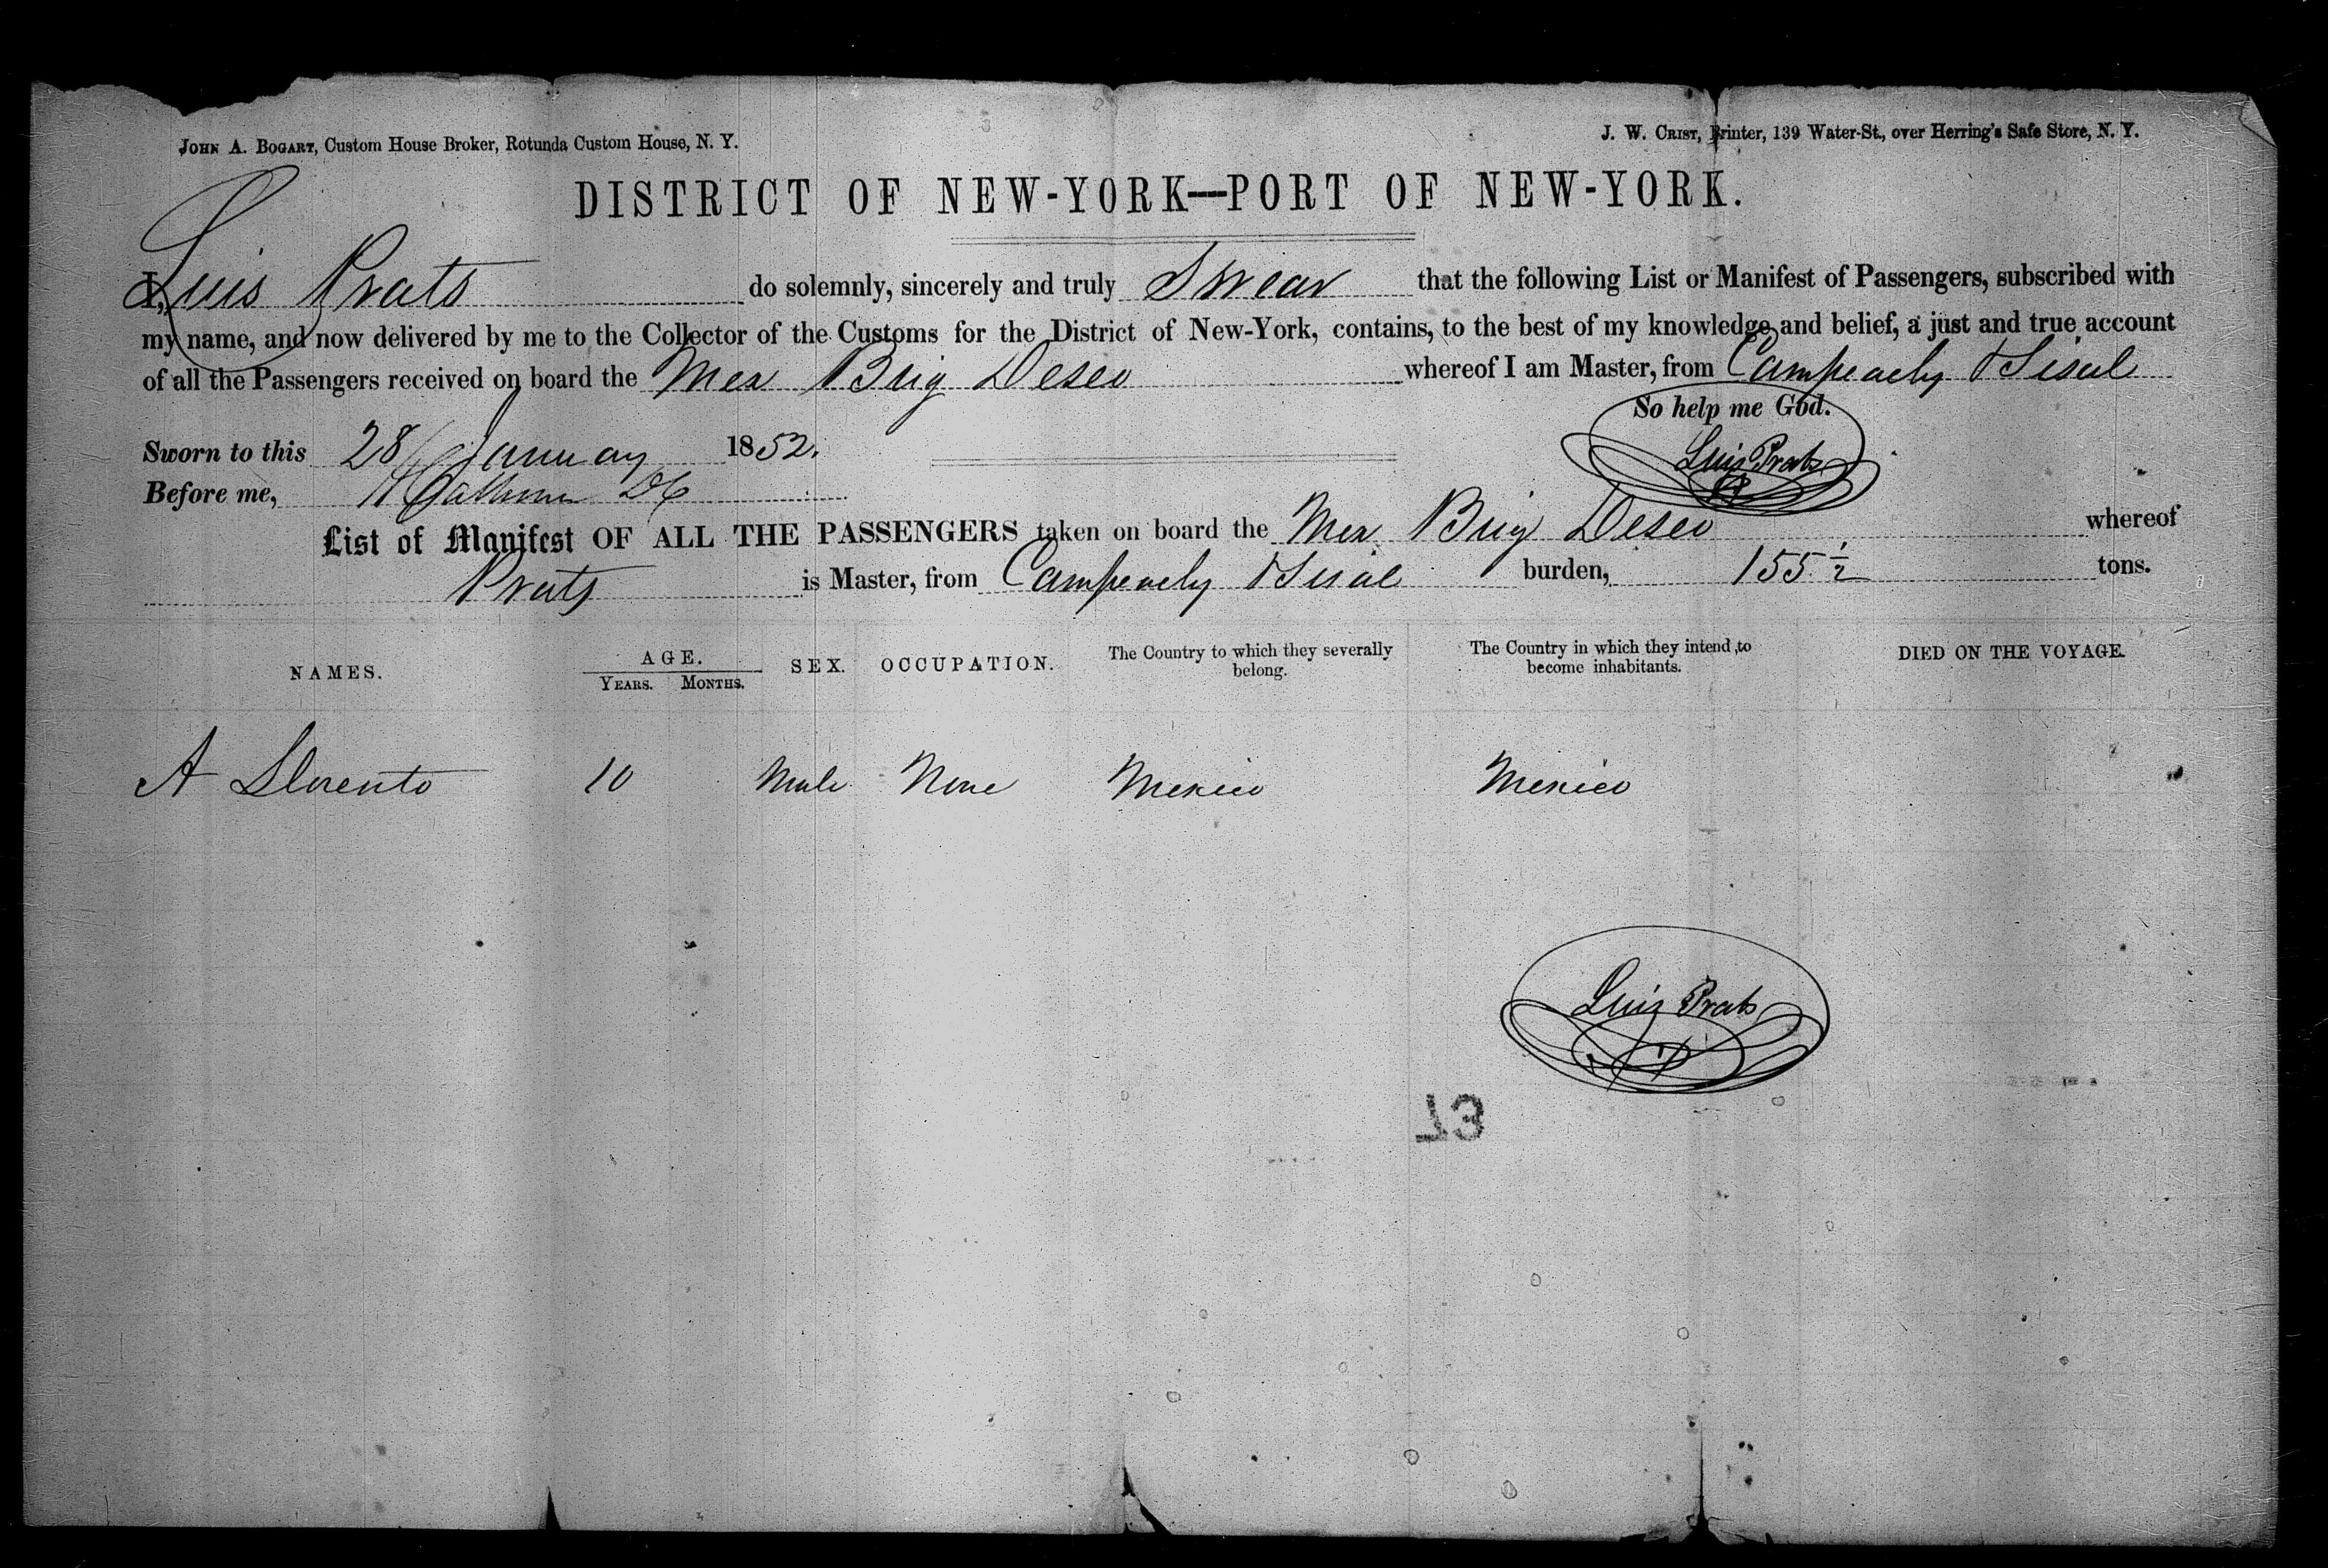 JOHN A. BOGART, Custom House Broker, Rotunda Custom House, N. Y.
J. W. CRIST, Printer, 139 Water-St., over Herring's Safe Store, N. Y.
DISTRICT OF NEW-YORK—PORT OF NEW-YORK.
I, Luis Prats do solemnly, sincerely and truly Swear that the following List or Manifest of Passengers, subscribed with
my name, and now delivered by me to the Collector of the Customs for the District of New-York, contains, to the best of my knowledge and belief, a just and true account
of all the Passengers received on board the Mex Brig Deseo whereof I am Master, from Campeachy & Sisal
So help me God.
Sworn to this 28 January 1852.
Luis Prats
Before me,
List of Manifest OF ALL THE PASSENGERS taken on board the Mex Brig Deseo whereof
Prats is Master, from Campeachy & Sisal burden, 155 1/2 tons.
NAMES. AGE. SEX. OCCUPATION. The Country to which they severally belong. The Country in which they intend to become inhabitants. DIED ON THE VOYAGE.
YEARS. MONTHS.
A Llorento 10 Male None Mexico Mexico
Luis Prats
73